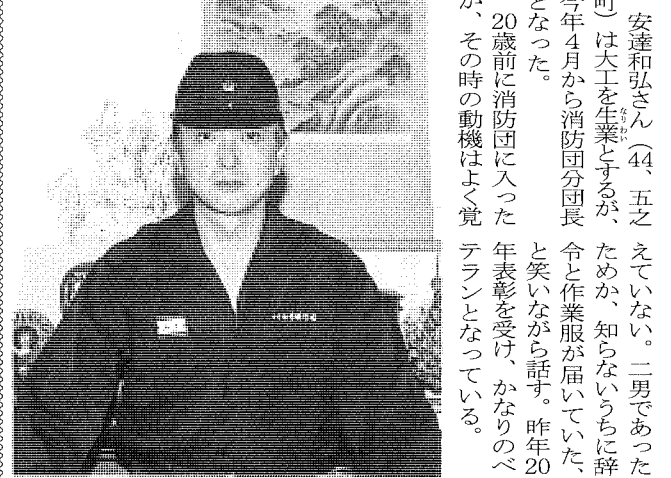 安達和弘さん（44、五之
町）は大工を生業とするが、
なりわい
今年４月から消防団分団長
となった。
20歳前に消防団に入った
が、その時の動機はよく覚
えていない。二男であった
ためか、知らないうちに辞
令と作業服が届いていた、
と笑いながら話す。昨年20
年表彰を受け、かなりのベ
テランとなっている。